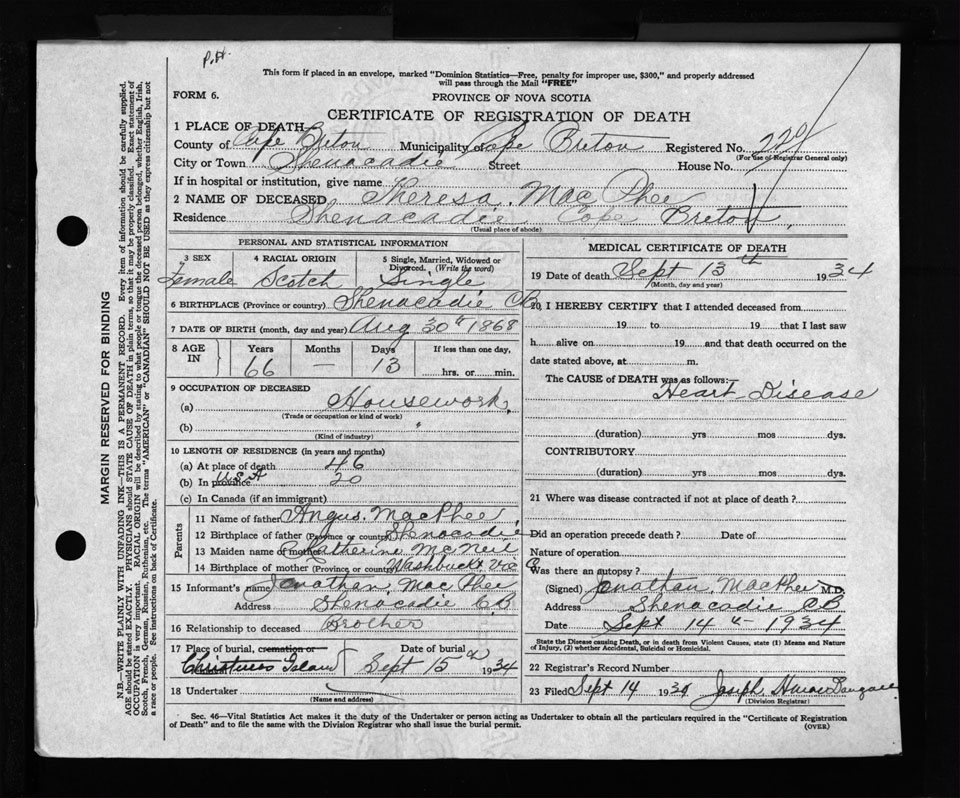 P.H.
This form if placed in an envelope, marked "Dominion Statistics—Free, penalty for improper use, $300," and properly addressed
will pass through the Mail "FREE"
FORM 6.
PROVINCE OF NOVA SCOTIA
CERTIFICATE OF REGISTRATION OF DEATH
1 PLACE OF DEATH
County of Cape Breton Municipality Cape Breton Registered No.
(For use of Registrar General only)
City or Town Shenacadie Street House No.
If in hospital or institution, give name
2 NAME OF DECEASED Theresa. Mac Phee
Residence Shenacadie Cape Breton
(Usual place of abode)
PERSONAL AND STATISTICAL INFORMATION
3 SEX 4 RACIAL ORIGIN 5 Single, Married, Widowed or
Divorced. (Write the word)
Female Scotch Single
6 BIRTHPLACE (Province or country) Shenacadie CB
7 DATE OF BIRTH (month, day and year) Aug 30th 1868
8 AGE IN Years Months Days If less than one day,
66 — 13 hrs. or min.
9 OCCUPATION OF DECEASED
(a) Housework
(Trade or occupation or kind of work)
(b)
(Kind of industry)
10 LENGTH OF RESIDENCE (in years and months)
(a) At place of death 46
(b) In province U.S.A 20
(c) In Canada (if an immigrant)
Parents
11 Name of father Angus. MacPhee
12 Birthplace of father (Province or country) Shenacadie
13 Maiden name of mother Katherine McNeil
14 Birthplace of mother (Province or country) Washbuckt
15 Informant's name Jonathan. Mac Phee
Address Shenacadie CB
16 Relationship to deceased Brother
17 Place of burial, cremation or Date of burial
Christmas Island Sept 15 1934
18 Undertaker
(Name and address)
MEDICAL CERTIFICATE OF DEATH
19 Date of death Sept 13th 1934
(Month, day and year)
20 I HEREBY CERTIFY that I attended deceased from
19 to 19 that I last saw
h alive on 19 and that death occurred on the
date stated above, at m.
The CAUSE of DEATH was as follows:
Heart Disease
(duration) yrs mos dys.
CONTRIBUTORY
(duration) yrs mos dys.
21 Where was disease contracted if not at place of death?
Did an operation precede death? Date of
Nature of operation
Was there an autopsy?
(Signed) Jonathan. MacPhee M.D.
Address Shenacadie CB
Date Sept 14th - 1934
State the Disease causing Death, or in death from Violent Causes, state (1) Means and Nature
of Injury, (2) whether Accidental, Suicidal or Homicidal.
22 Registrar's Record Number
23 Filed Sept 14 1934 Joseph
(Division Registrar)
Sec. 46—Vital Statistics Act makes it the duty of the Undertaker or person acting as Undertaker to obtain all the particulars required in the "Certificate of Registration
of Death" and to file the same with the Division Registrar who shall issue the burial permit.
(OVER)
MARGIN RESERVED FOR BINDING
N.B.—WRITE PLAINLY WITH UNFADING INK—THIS IS A PERMANENT RECORD. Every item of information should be carefully supplied.
AGE should be stated EXACTLY. PHYSICIANS should STATE CAUSE OF DEATH in plain terms, so that it may be properly classified. Exact statement of
OCCUPATION is very important. RACIAL ORIGIN will be described by stating to what people or tongue the deceased person belonged, whether English, Irish,
Scotch, French, German, Russian, Ruthenian, etc. The terms "AMERICAN" or "CANADIAN" SHOULD NOT BE USED as they express citizenship but not
a race or people. See instructions on back of Certificate.